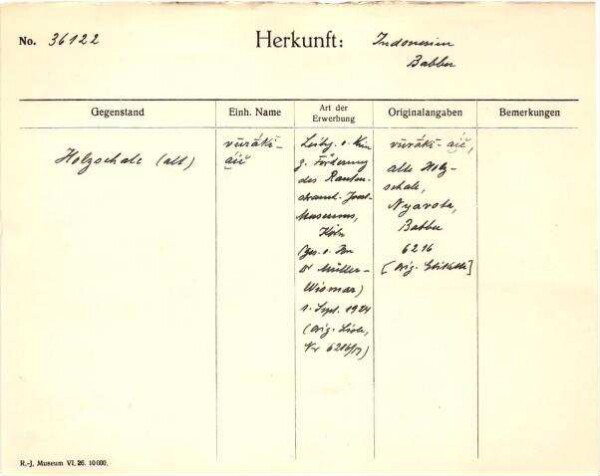 No. 36122
Herkunft: Indonesien
Babber
Gegenstand
Einh. Name
Art der Erwerbung
Originalangaben
Bemerkungen
Holzschale (alt)
vūrāks-
aiĕ
z. Förderung
des Rauten-
strauch-Joest-
Museums,
Köln
(Ges. v. 
Dr Müller-
Wismar)
1. Sept. 1924
(Orig. Liste,
Nr
vūrāks-aiĕ,
alte Holz-
schale,
Babber
6216
[Orig. Etikette]
R.-J. Museum VI. 26. 10 000.